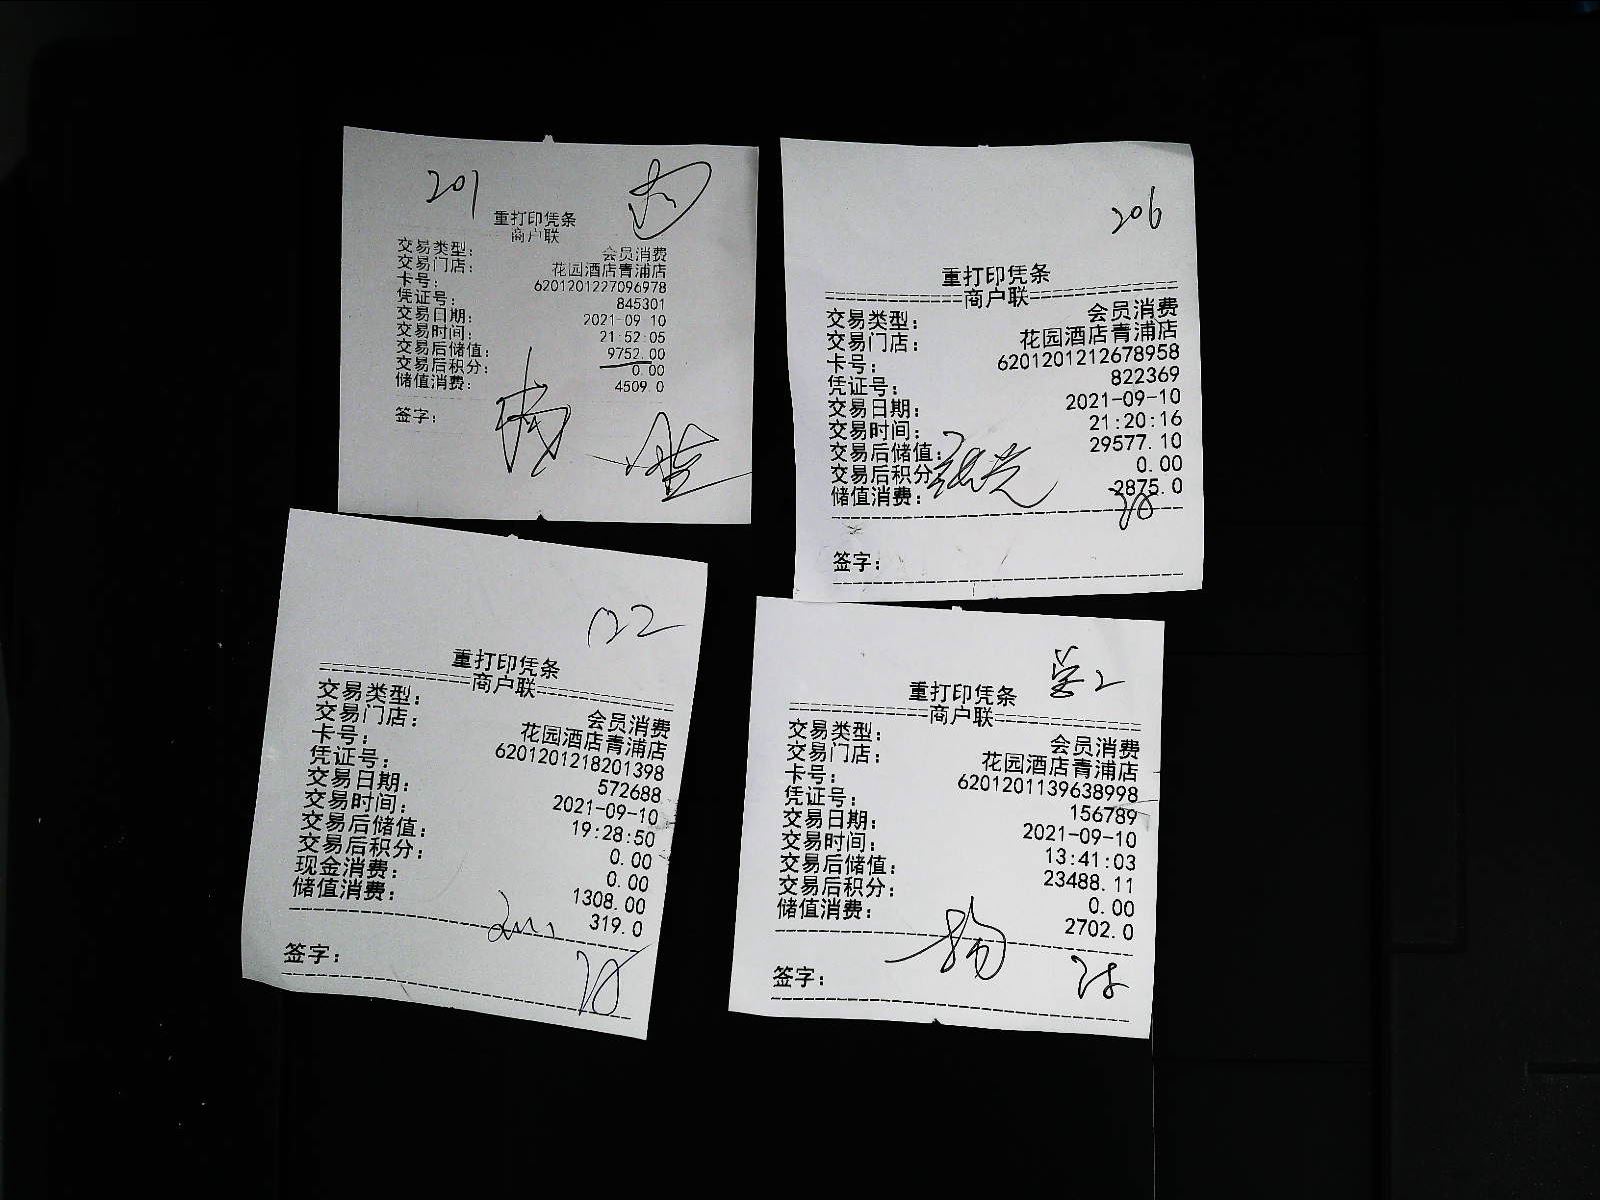 201
重打印凭条
商户联
交易类型: 会员消费
交易门店: 花园酒店青浦店
卡号: 6201201227096978
凭证号: 845301
交易日期: 2021-09-10
交易时间: 21:52:05
交易后储值: 9752.00
交易后积分: 0.00
储值消费: 4509.0
签字:
206
重打印凭条
商户联
交易类型: 会员消费
交易门店: 花园酒店青浦店
卡号: 6201201212678958
凭证号: 822369
交易日期: 2021-09-10
交易时间: 21:20:16
交易后储值: 29577.10
交易后积分: 0.00
储值消费: 2875.0
签字:
重打印凭条
商户联
交易类型: 会员消费
交易门店: 花园酒店青浦店
卡号: 6201201218201398
凭证号: 572688
交易日期: 2021-09-10
交易时间: 19:28:50
交易后储值: 0.00
交易后积分: 0.00
现金消费: 1308.00
储值消费: 319.0
签字:
重打印凭条
商户联
交易类型: 会员消费
交易门店: 花园酒店青浦店
卡号: 6201201139638998
凭证号: 156789
交易日期: 2021-09-10
交易时间: 13:41:03
交易后储值: 23488.11
交易后积分: 0.00
储值消费: 2702.0
签字: